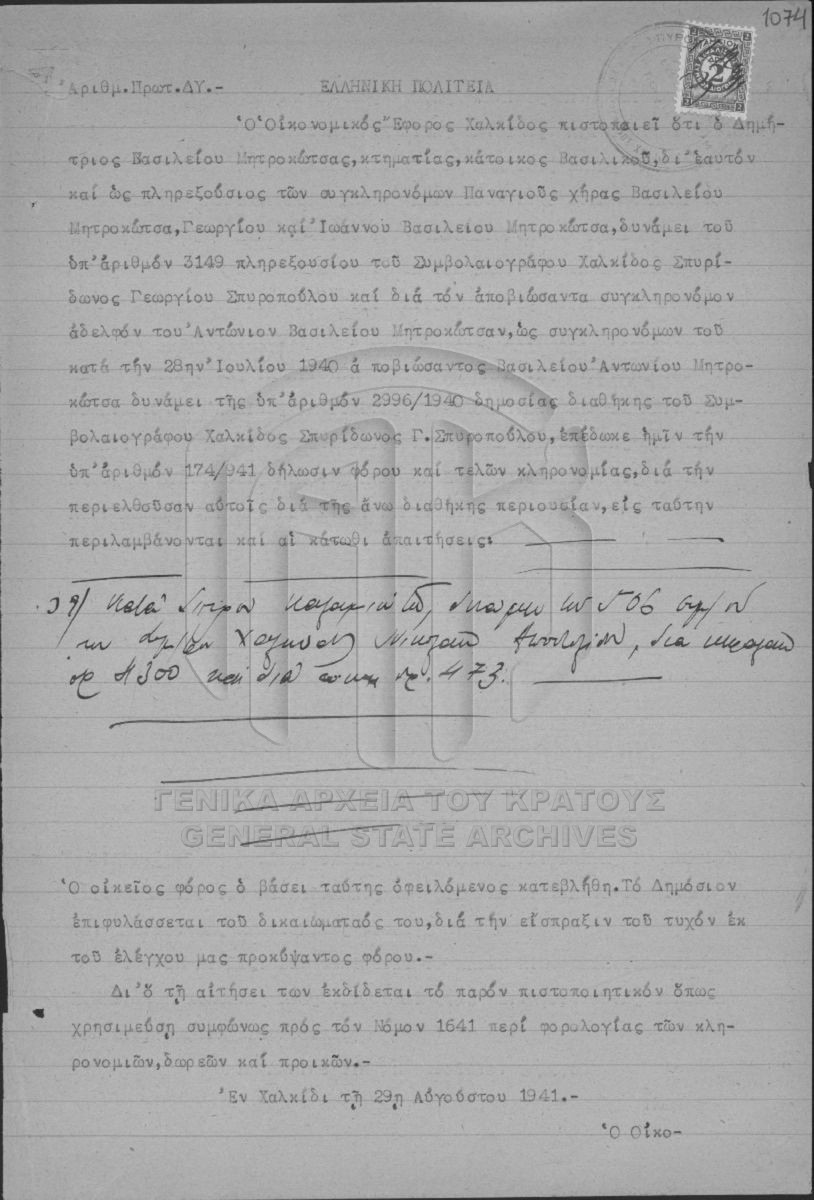 1074
Ἀριθμ.Πρωτ.ΔΥ.- ΕΛΛΗΝΙΚΗ ΠΟΛΙΤΕΙΑ
Ὁ Οἰκονομικός Ἔφορος Χαλκίδος πιστοποιεῖ ὅτι ὁ Δημή-
τριος Βασιλείου Μητροκώτσας,κτηματίας,κάτοικος Βασιλικοῦ,δι'ἑαυτόν
καί ὡς πληρεξούσιος τῶν συγκληρονόμων Παναγιοῦς χήρας Βασιλείου
Μητροκώτσα,Γεωργίου καί Ἰωάννου Βασιλείου Μητροκώτσα,δυνάμει τοῦ
ὑπ'ἀριθμόν 3149 πληρεξουσίου τοῦ Συμβολαιογράφου Χαλκίδος Σπυρί-
δωνος Γεωργίου Σπυροπούλου καί διά τόν ἀποβιώσαντα συγκληρονόμον
ἀδελφόν του Ἀντώνιον Βασιλείου Μητροκώτσαν,ὡς συγκληρονόμων τοῦ
κατά τήν 28ην Ἰουλίου 1940 ἀ ποβιώσαντος Βασιλείου Ἀντωνίου Μητρο-
κώτσα δυνάμει τῆς ὑπ'ἀριθμόν 2996/1940 δημοσίας διαθήκης τοῦ Συμ-
βολαιογράφου Χαλκίδος Σπυρίδωνος Γ.Σπυροπούλου,ἐπέδωκε ἡμῖν τήν
ὑπ'ἀριθμόν 174/941 δήλωσιν φόρου καί τελῶν κληρονομίας,διά τήν
περιελθοῦσαν αὐτοῖς διά τῆς ἄνω διαθήκης περιουσίαν,εἰς ταύτην
περιλαμβάνονται καί αἱ κάτωθι ἀπαιτήσεις:
Κατά Σπύρου 506
Χαλκίδος Νικολάου διά
300 καί διά δρ. 473.
ΓΕΝΙΚΑ ΑΡΧΕΙΑ ΤΟΥ ΚΡΑΤΟΥΣ
GENERAL STATE ARCHIVES
Ὁ οἰκεῖος φόρος ὁ βάσει ταύτης ὀφειλόμενος κατεβλήθη.Τό Δημόσιον
ἐπιφυλάσσεται τοῦ δικαιώματαός του,διά τήν εἴσπραξιν τοῦ τυχόν ἐκ
τοῦ ἐλέγχου μας προκύψαντος φόρου.-
Δι'ὅ τῇ αἰτήσει των ἐκδίδεται τό παρόν πιστοποιητικόν ὅπως
χρησιμεύσῃ συμφώνως πρός τόν Νόμον 1641 περί φορολογίας τῶν κλη-
ρονομιῶν,δωρεῶν καί προικῶν.-
Ἐν Χαλκίδι τῇ 29ῃ Αὐγούστου 1941.-
Ὁ Οἰκο-